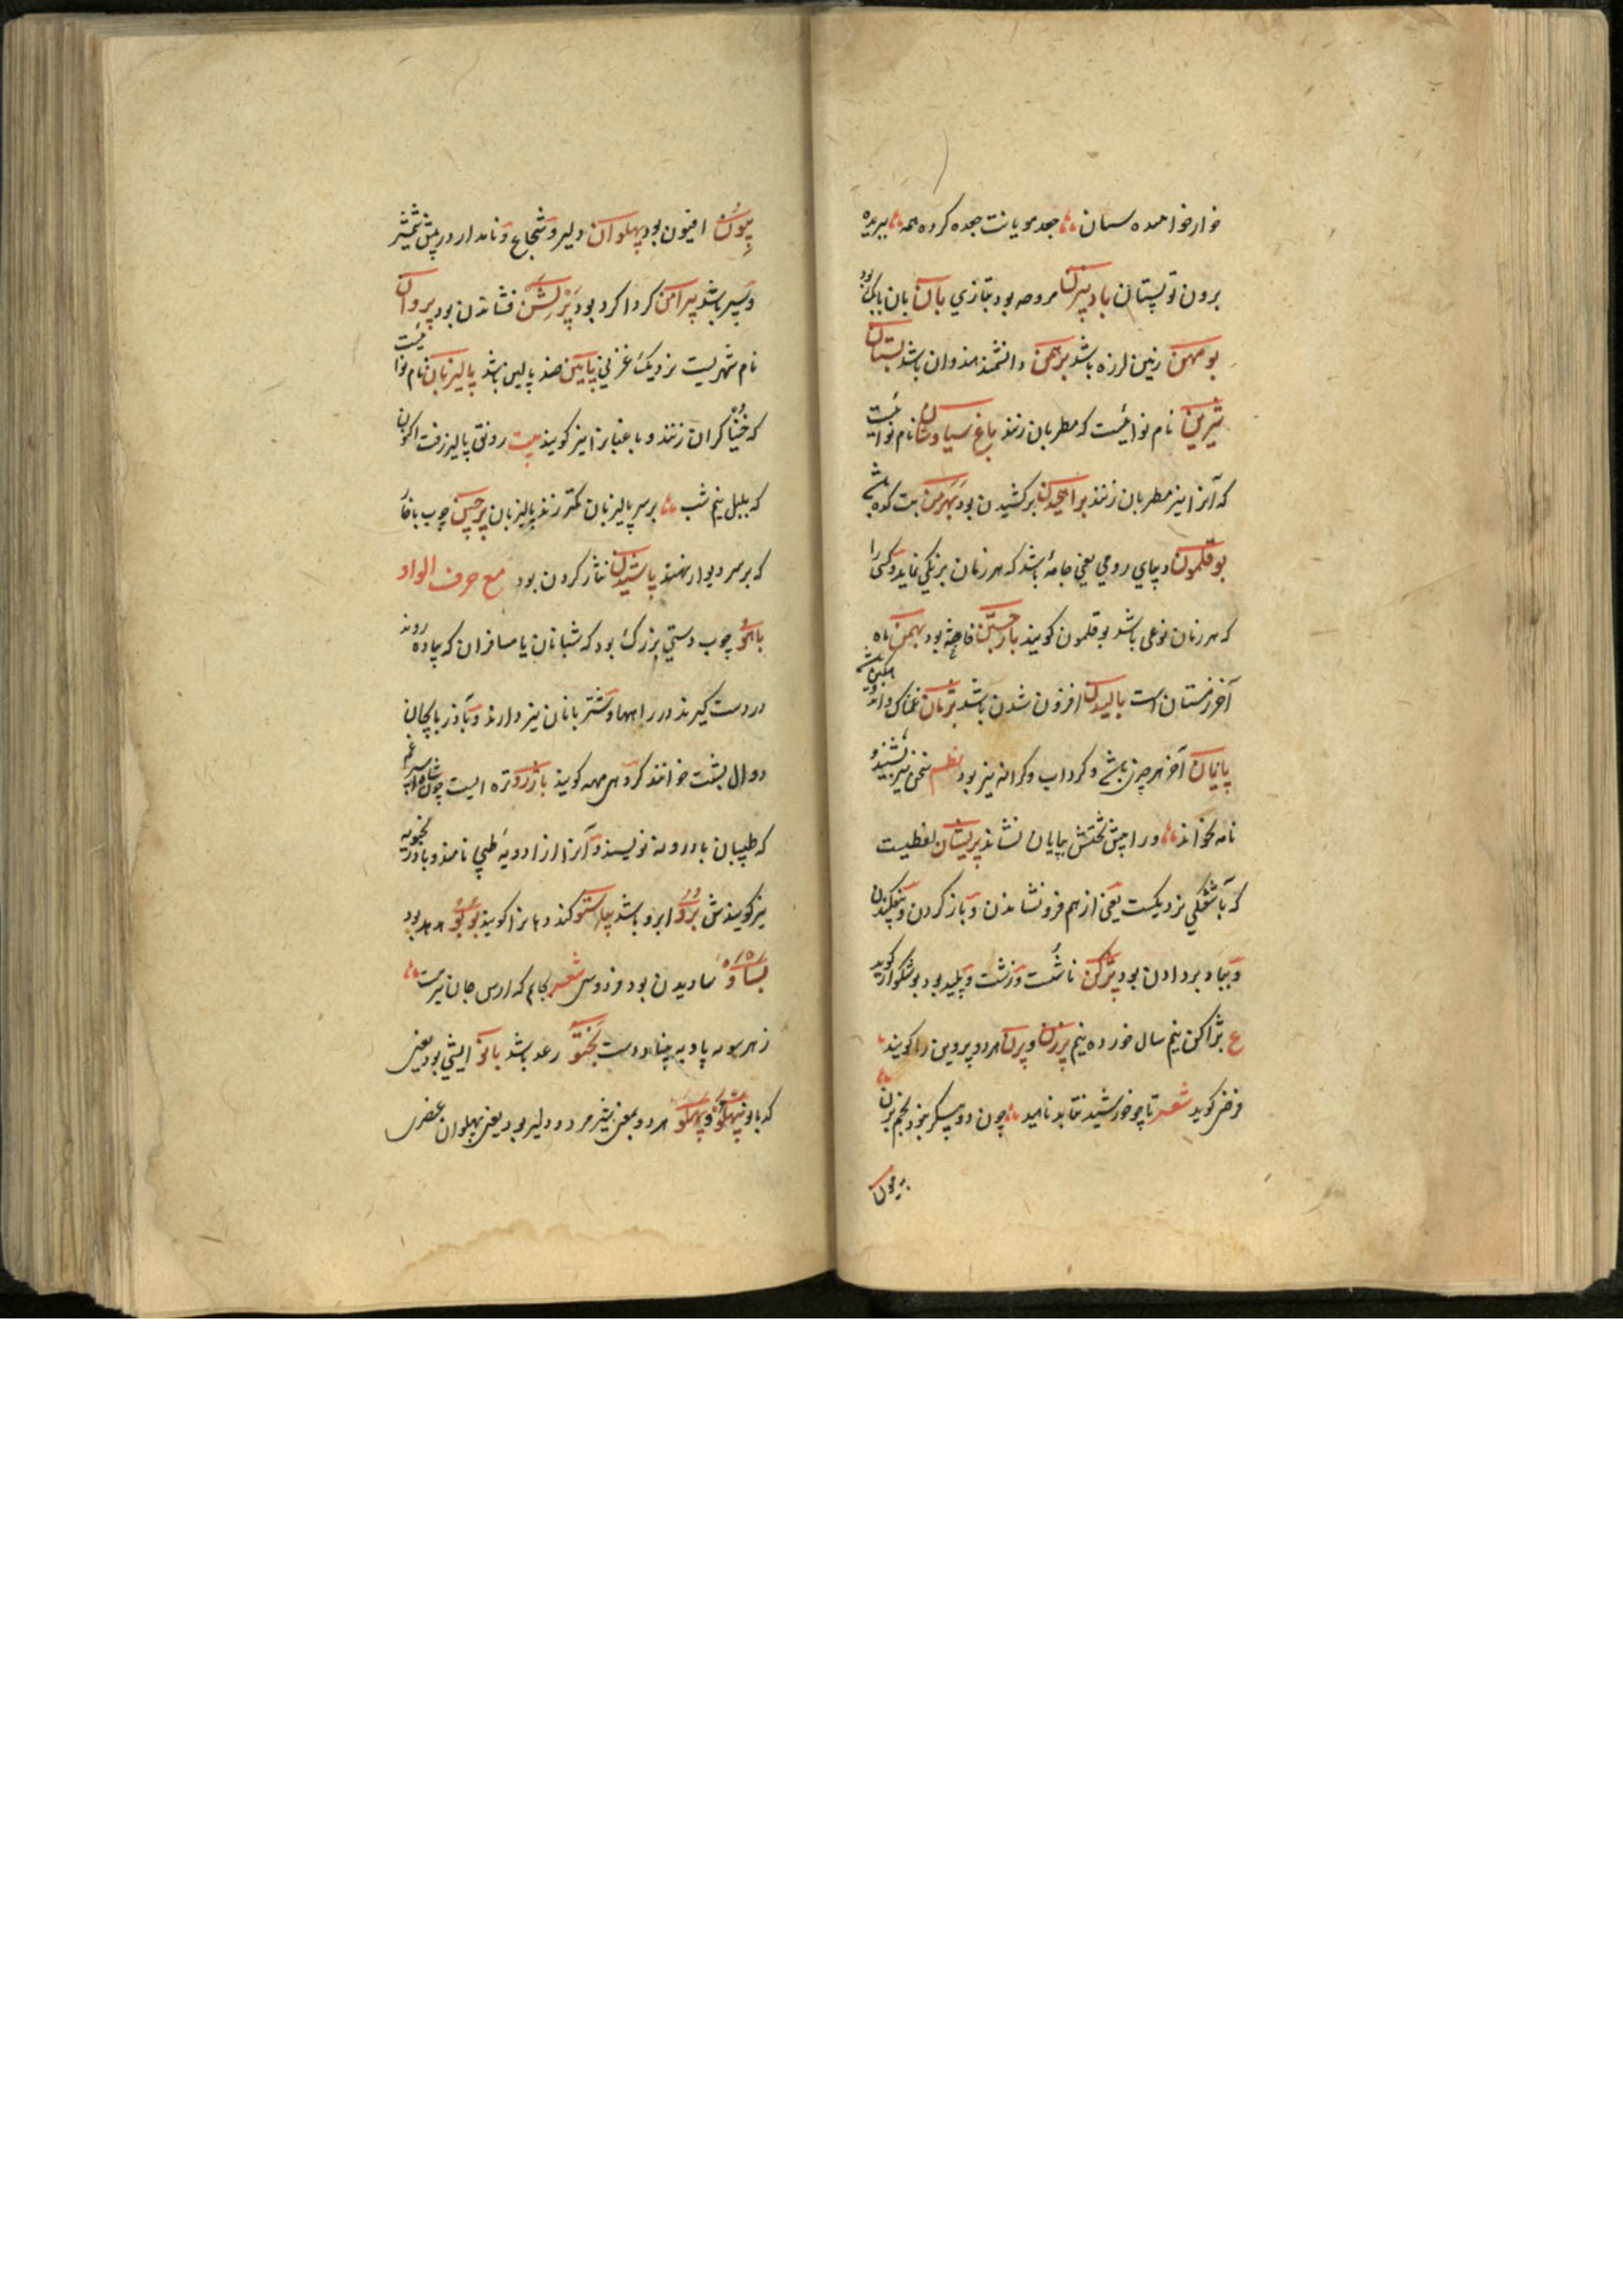 خوارخواهنده سنان جعد مویانت جعده کرده همه ببریده
برون تو پستان بادبیزن مروحه بود بتازی بان بان بانگ بود
بومهن زمین لرزه باشد برهمن دانشمند هندوان باشد
نام نوائیست که مطربان زنند باغ سیاوشان نام نوائیست
که آنرا نیز مطربان زنند براهیختن برکشیدن بود بت کده باشد
بوقلمون دیبای رومی یعنی جامهٔ باشد که هر زمان برنگی نماید و کسی را
که هر زمان نوعی باشد بوقلمون گویند فاخته بود بهمن ماه
آخر زمستان است بالیدن افزون شدن باشد پژمان غمناک و اندوهگین باشد
پایان آخر هر چیز باشد و گرداب و کرانه نیز بود نظم سخن نیز نشنید و
نامه نخواند ورا پیش تختش بپایان نشاند پریشان لفظیست
که بآشفتگی نزدیکست یعنی از هم فرونشاندن و باز کردن
و بباد بر دادن بود پژگن ناشست و زشت و پلید بود بوشکور گوید
ع بژاگن نیم سال خورده نیم پرن و پرن هر دو پروین را گویند
فرخی گوید شعر تا چو خورشید نتابد ناهید چون دوپیکر نبود نجم پرن
پیون
پیون افیون بود پهلوان دلیر و شجاع و نامدار در پیش شمشیر
و سپر باشد پیرامن گرداگرد بود فشاندن بود پروان
نام شهریست نزدیک غزنی پایین ضد بالین باشد پالیزبان نام نوائیست
که خنیاگران زنند و باغبانرا نیز گویند بیت رونق پالیز رفت اکنون
که بلبل نیم شب بر سر پالیزبان کمتر زند پالیزبان پرچین چوب با خار
که بر سر دیوار نهند پاشیدن نثار کردن بود مع حرف الواو
باهو چوب دستی بزرگ بود که شبانان یا مسافران که پیاده روند
در دست گیرند در راهها و شتربانان نیز دارند
دوال پشت خوانند گروهی مهمه گویند باذرو تره ایست چون شاه سپرغم
که طبیبان بادرونه نویسند و آنرا از ادویهٔ طبی نامند و بادرنجبویه
نیز گویندش برو ابرو باشد گویند بوبو هدهد بود
بساو ساویدن بود فردوسی شعر
ز هر سو به پا و به دست بختو رعد باشد بانو ایشی بود یعنی
کدبانو پهلو هر دو بمعنی شیرمرد و دلیر بود یعنی پهلوان عنصری